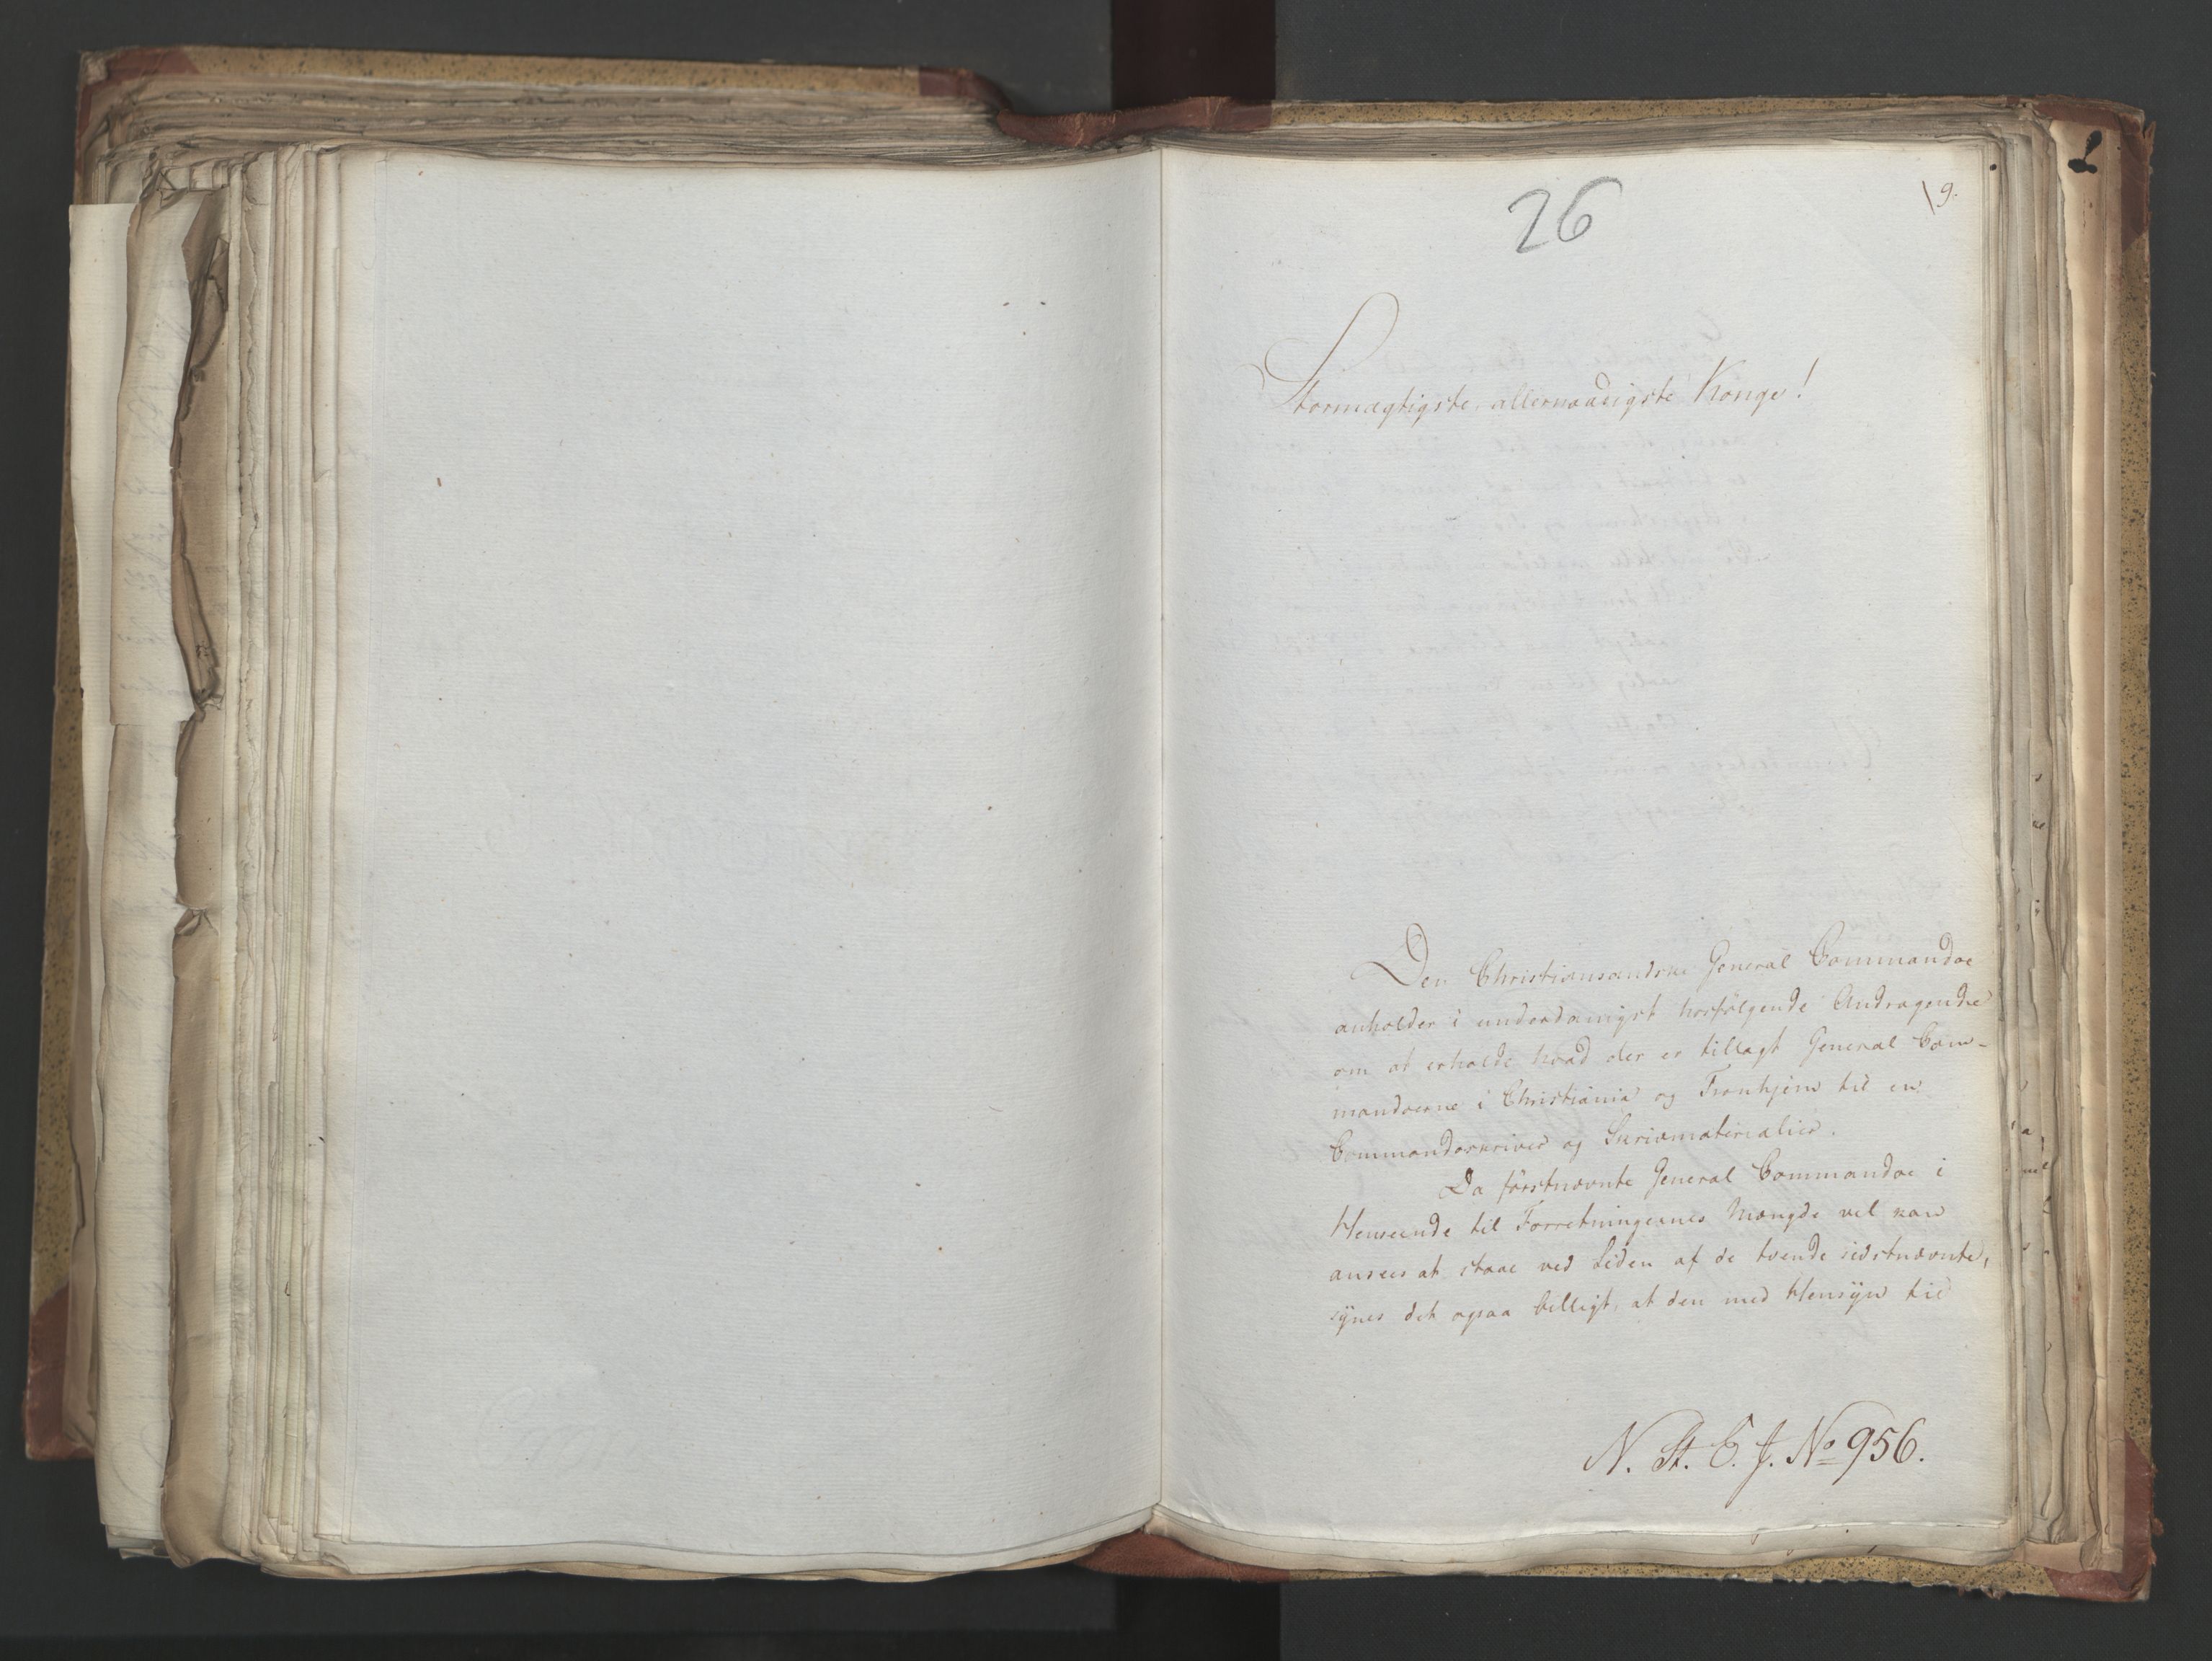 26
19.
Stormægtigste, allernaadigste Konge!
Den Christiansandske General Commandoe
anholder i underdanigst hosfølgende Andragende
om at erholde hvad der er tillagt General Com-
mandoerne i Christiania og Tronhjem til en
Commandoskriver og Skrivmaterialier.
Da førstnævnte General Commandoe i
Henseende til Forretningernes Mængde vel kan
ansees at staae ved Siden af de tvende sidstnævnte,
synes det ogsaa billigt, at den med Hensyn til
N. St. C. J. No 956.